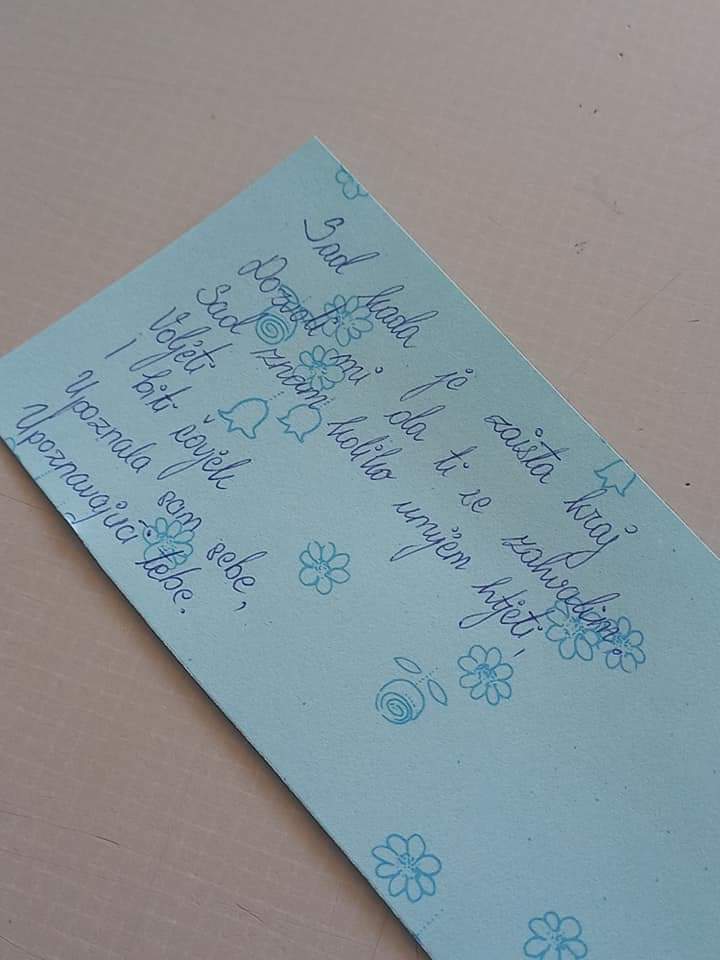 Sad kada je zaista kraj
Dozvoli mi da ti se zahvalim.
Sad znam koliko umijem htjeti,
Voljeti
I biti čovjek
Upoznala sam sebe,
Upoznavajući tebe.